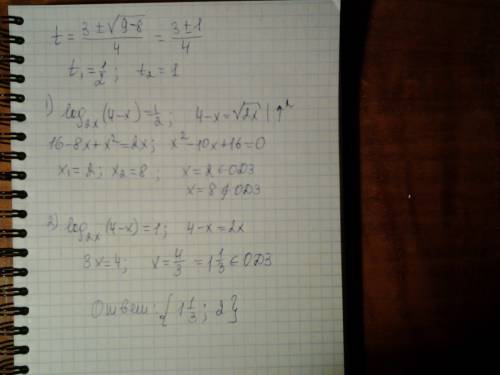 t = (3 ± √(9-8))/4 = (3 ± 1)/4
t₁ = 1/2; t₂ = 1
1) log₂ₓ(4-x) = 1/2; 4-x = √2x |↑²
16-8x+x² = 2x; x²-10x+16=0
x₁ = 2; x₂ = 8; x = 2 ∈ ОДЗ
x = 8 ∉ ОДЗ
2) log₂ₓ(4-x) = 1; 4-x = 2x
3x = 4; x = 4/3 = 1 1/3 ∈ ОДЗ
Ответ: {1 1/3; 2}